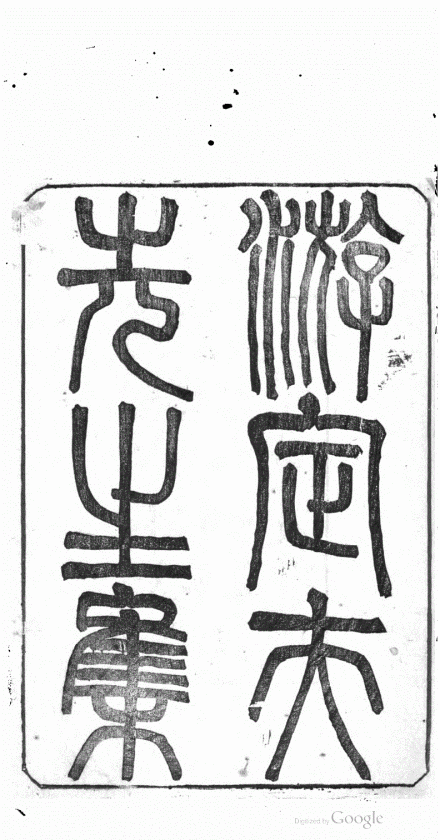 游定夫
先生集
Digitized by Google